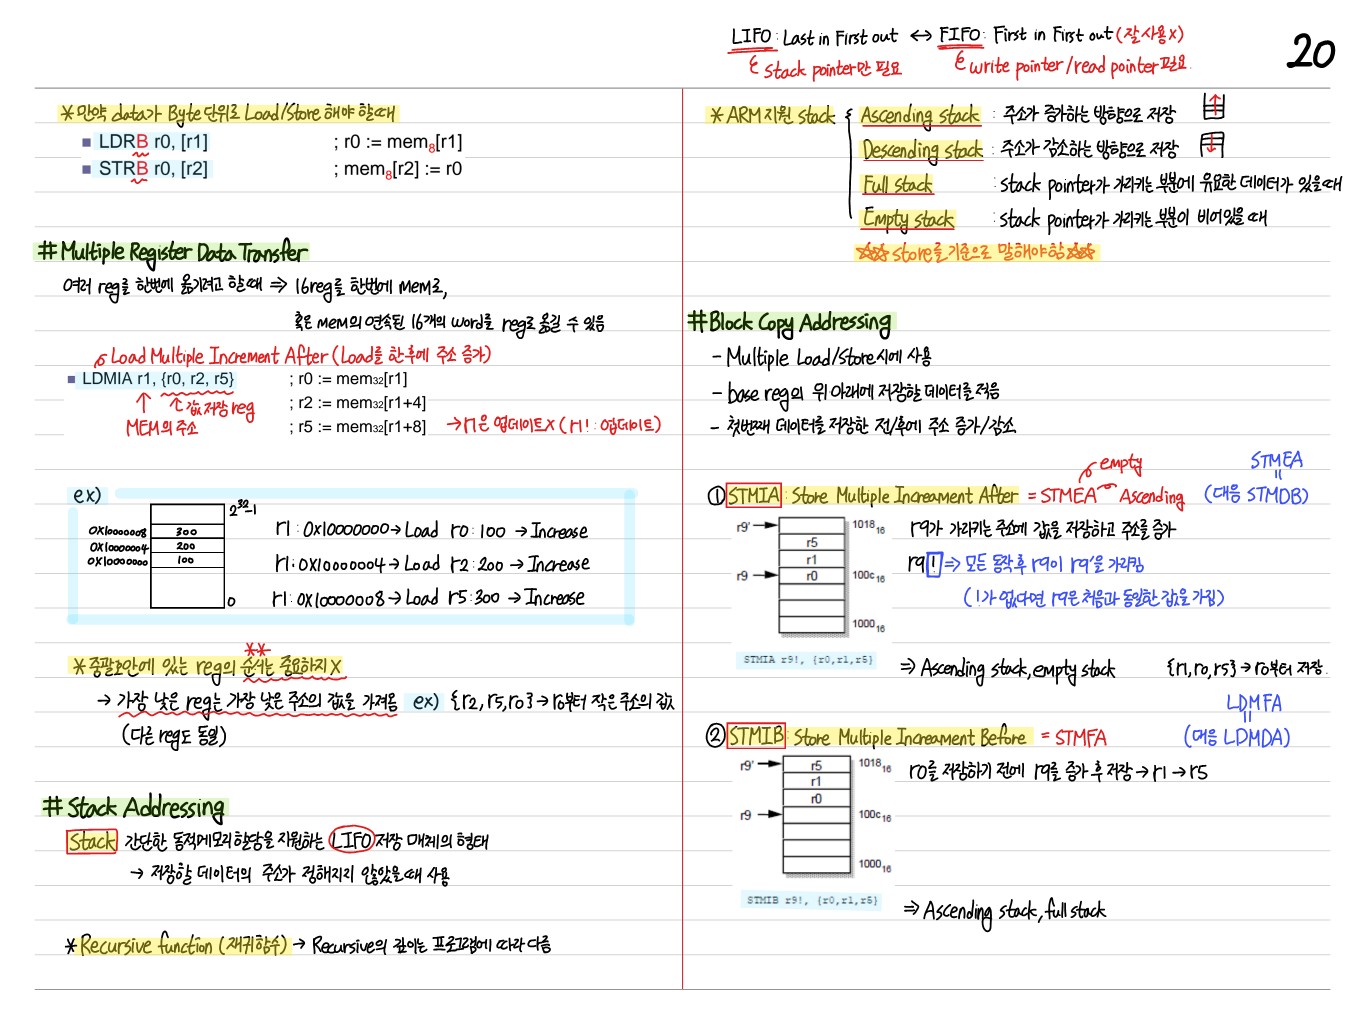 LIFO : Last in First out ↔ FIFO : First in First out (잘 사용 X)
stack pointer만 필요
write pointer/read pointer 필요.
20
* 만약 data가 Byte 단위로 Load/Store 해야 할 때
■ LDRB r0, [r1] ; r0 := mem8[r1]
■ STRB r0, [r2] ; mem8[r2] := r0
# Multiple Register Data Transfer
여러 reg를 한번에 옮기려고 할 때 ⇒ 16reg를 한번에 mem로,
혹은 mem의 연속된 16개의 word를 reg로 옮길 수 있음
Load Multiple Increment After (Load를 한 후에 주소 증가)
■ LDMIA r1, {r0, r2, r5} ; r0 := mem32[r1]
; r2 := mem32[r1+4]
; r5 := mem32[r1+8]
↑ MEM의 주소
↑ 값 저장 reg
→ r1은 업데이트 X (r1! : 업데이트)
ex)
2^32-1
0X10000008 300
0X10000004 200
0X10000000 100
0
r1 : 0X10000000 → Load r0 : 100 → Increase
r1 : 0X10000004 → Load r2 : 200 → Increase
r1 : 0X10000008 → Load r5 : 300 → Increase
**
* 중괄호안에 있는 reg의 순서는 중요하지 X
→ 가장 낮은 reg는 가장 낮은 주소의 값을 가져옴 ex) {r2, r5, r0} → r0부터 작은 주소의 값
(다른 reg도 동일)
# Stack Addressing
Stack 간단한 동적메모리할당을 지원하는 LIFO 저장 매체의 형태
→ 저장할 데이터의 주소가 정해지지 않았을 때 사용
* Recursive function (재귀함수) → Recursive의 깊이는 프로그램에 따라 다름
* ARM 지원 stack
Ascending stack : 주소가 증가하는 방향으로 저장
Descending stack : 주소가 감소하는 방향으로 저장
Full stack : stack pointer가 가리키는 부분에 유효한 데이터가 있을 때
Empty stack : stack pointer가 가리키는 부분이 비어있을 때
☆☆ store를 기준으로 말해야함 ☆☆
# Block Copy Addressing
- Multiple Load/Store시에 사용
- base reg의 위 아래에 저장할 데이터를 적음
- 첫번째 데이터를 저장한 전/후에 주소 증가/감소
empty
STMEA
① STMIA : Store Multiple Increament After = STMEA Ascending (대응 STMDB)
r9' → 1018 16
r5
r1
r9 → r0 100c 16
1000 16
STMIA r9!, {r0,r1,r5}
r9가 가리키는 주소에 값을 저장하고 주소를 증가
r9! ⇒ 모든 동작 후 r9이 r9'을 가리킴
(!가 없다면 r9은 처음과 동일한 값을 가짐)
⇒ Ascending stack, empty stack {r1, r0, r5} → r0부터 저장.
LDMFA
② STMIB : Store Multiple Increament Before = STMFA (대응 LDMDA)
r9' → r5 1018 16
r1
r0
r9 → 100c 16
1000 16
STMIB r9!, {r0,r1,r5}
r0를 저장하기 전에 r9를 증가 후 저장 → r1 → r5
⇒ Ascending stack, full stack